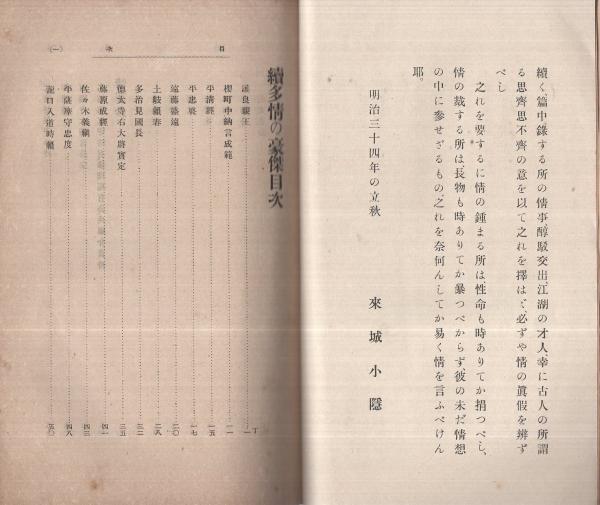 續く篇中錄する所の情事醇駁交出、江湖の才人、幸に古人の所謂
る思齊思不齊の意を以て之れを擇はゞ、必ずや情の眞假を辨ず
べし
之れを要するに情の鍾まる所は、性命も時ありてか捐つべし、
情の裁する所は長物も時ありてか暴つべからず、彼の未だ情想
の中に參せざるもの、之れを奈何んしてか易く情を言ふべけん
耶。
明治三十四年の立秋
來城小隱
目次
(一)
續多情の豪傑目次
護良親王 一丁
櫻町中納言成範 一一
平淸經 一五
平忠盛 一七
遠藤盛遠 二〇
土岐賴春 二八
多治見國長 三二
德大寺右大將實定 三五
藤原成經 四一
佐々木義綱 四三
平薩摩守忠度 四八
瀧口入道時賴 五〇